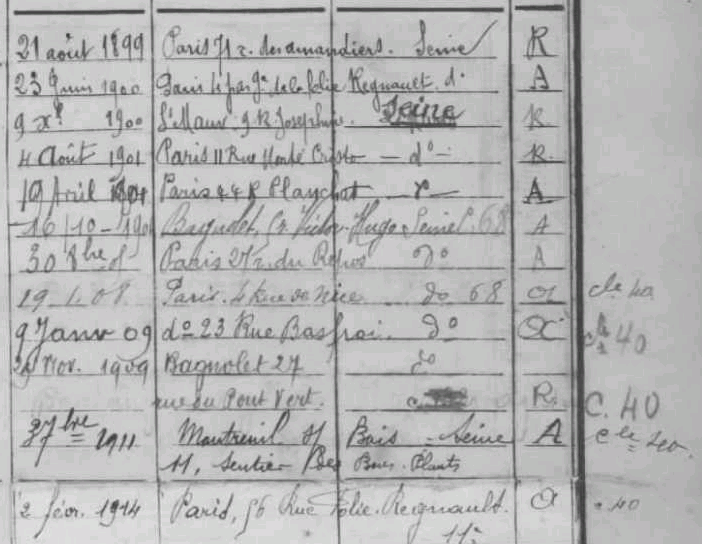 21 août 1899 Paris 71 r. des amandiers. Seine R
23 Juin 1900 Paris 4 pasge de la folie Regnault do A
9 xbre 1900 St Maur 9 R Joséphine Seine R
4 Août 1901 Paris 11 Rue Monté Cristo — do — R.
19 Avril Paris 44 R Planchat A
16/10-190 Bagnolet, Victor Hugo Seine 68 A
30 8bre Paris 27 r. du Repos do A
19.1.08 Paris. 4 Rue de Nice do 68 a cle 40
9 Janv 09 do 23 Rue Basfroi. do a 40
Nov. 1909 Bagnolet 27 do
rue du Pont Vert. R. C. 40
7bre 1911 Montreuil s/ Bois - Seine A cle
11, Sentier Des Buis-Plants
2 févr. 1914 Paris, 56 Rue Folie-Regnault. a 40
11e